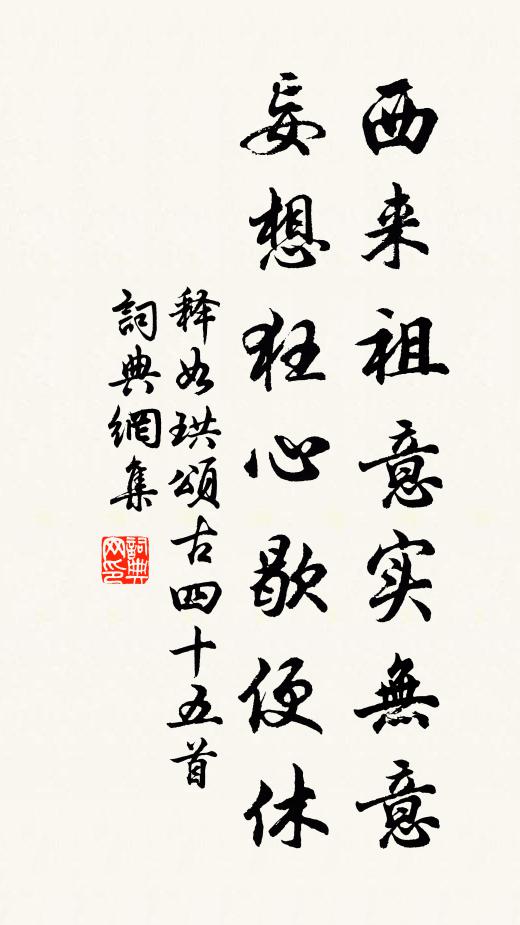 西来祖意实無意
妄想狂心歇便休
释如珙頌古四十五首
詞典網集
詞典網印